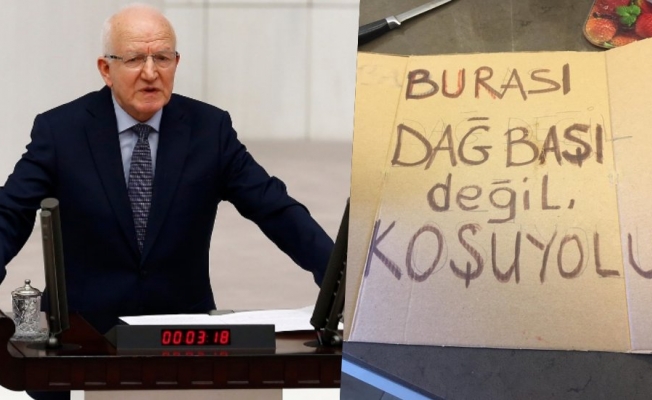 000318
BURASI
DAĞ BAŞI
değil,
KOŞUYOLU